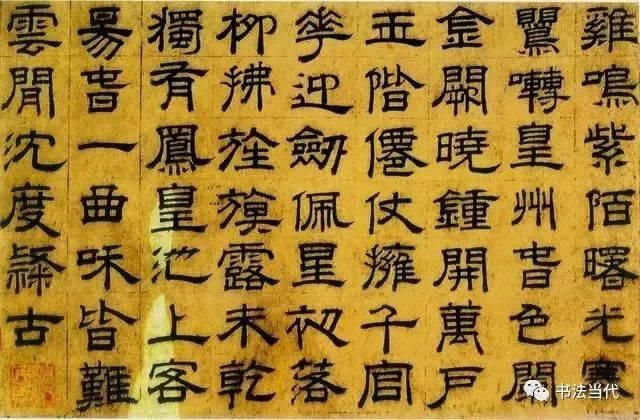 雞鳴紫陌曙光寒
鸎囀皇州旾色闌
金闕曉鍾開萬戶
玉階僊仗擁千官
華迎劒佩星初落
柳拂旌旗露未乾
獨有鳳皇池上客
昜旾一曲咊皆難
雲閒沈度隸古
书法当代